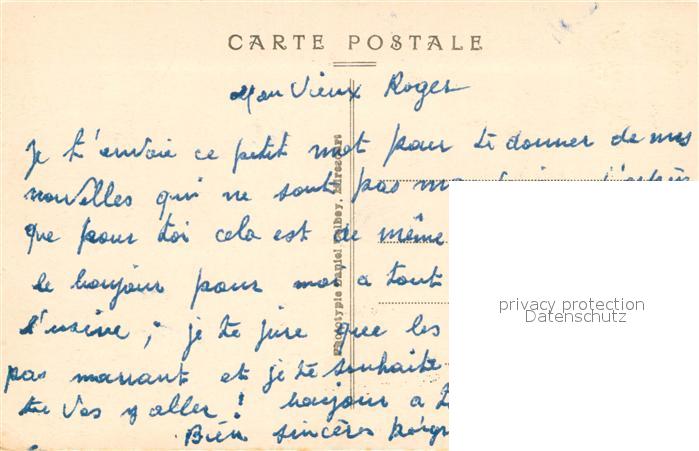 CARTE POSTALE
Mon Vieux Roger
Je t'envoie ce petit mot pour te donner de mes
nouvelles qui ne sont pas j'espère
que pour toi cela est de même
le bonjour pour moi a tout
l'usine, je te jure que les
pas marrant et je te souhaite
tu vas y aller! bonjour a
Bien sincères
Phototypie Daniel
privacy protection
Datenschutz